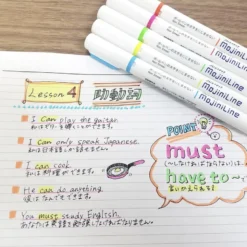 Lesson 4 助動詞
I can play the guitar.
私はギターを弾くことができます。
I can only speak Japanese.
私は日本語しか話せません。
I can cook.
私は料理ができます。
He can do anything.
彼はなんでもできます。
You must study English.
あなたは英語を勉強しなければなりません。
POINT
must
(~しなければならない)は、
have to~
でいいかえられる!
MojiniLine
MojiniLine
MojiniLine
MojiniLine